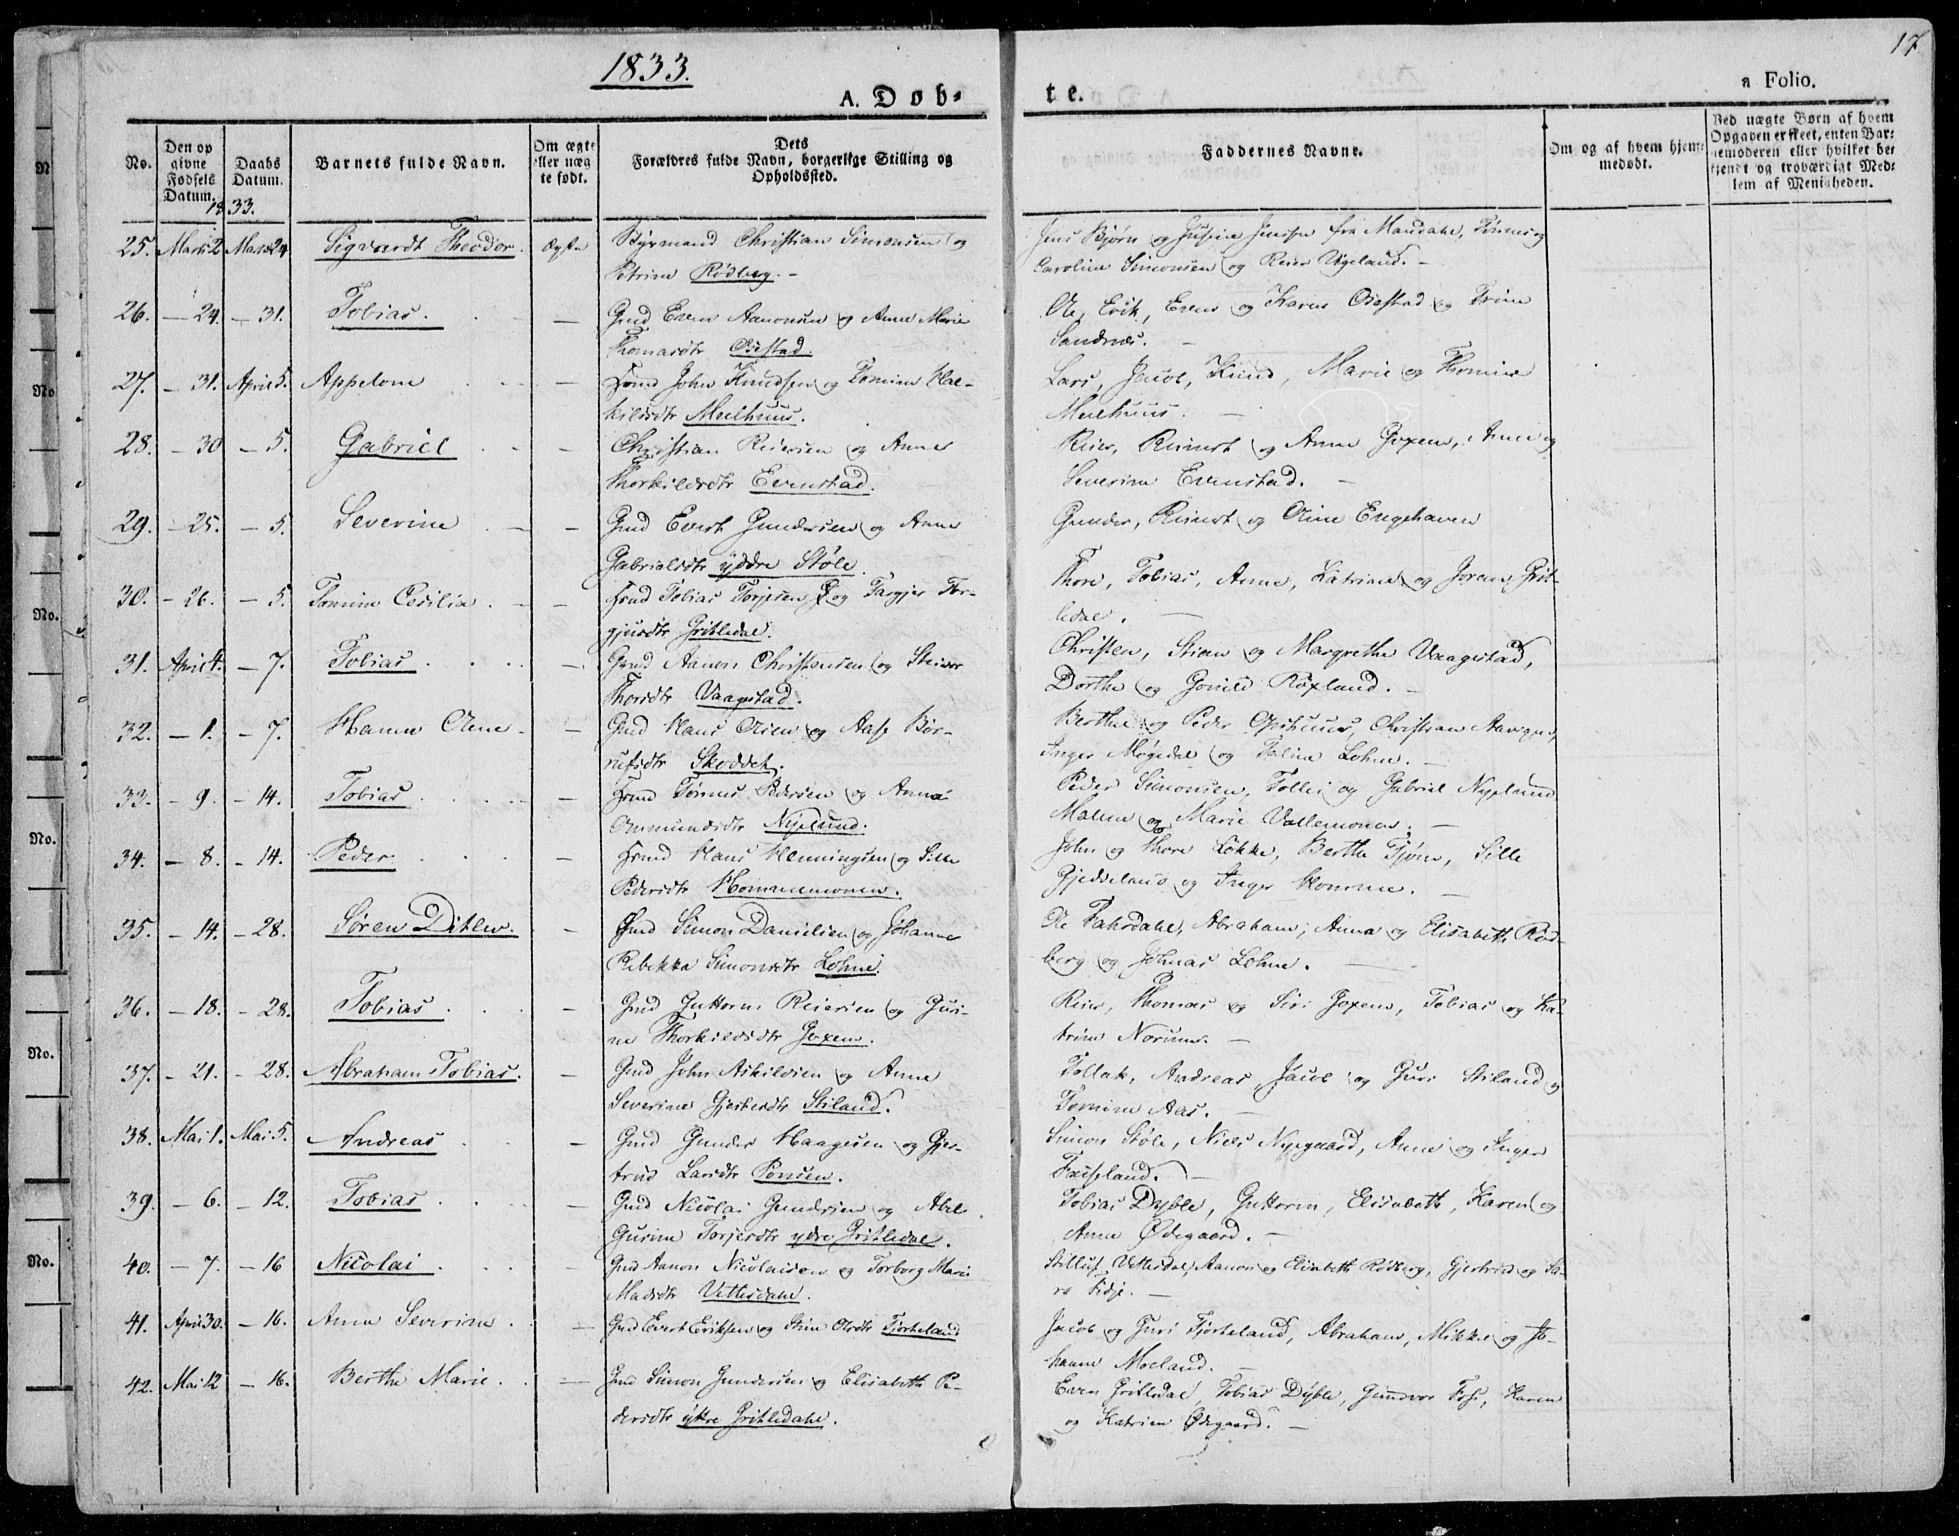 17
1833.
A. Dob-
te.
a Folio.
No.
Den op
givne
Fødsels
Datum.
Daabs
Datum.
1833.
Barnets fulde Navn.
Om ægte
eller uæg
te født.
Dets
Forældres fulde Navn, borgerlige Stilling og
Opholdssted.
Faddernes Navne.
Om og af hvem hjem-
medøbt.
Ved uægte Børn af hvem
Opgaven er skeet, enten Bar-
nemoderen eller hvilket be-
kjendt og troværdigt Med-
lem af Menigheden.
25. Marts 2 Marts 24 Sigvardt Theodor. Ægte Styrmand Christian Simonsen og
Petrine Rødberg. -
Jens Bjørn og Jensen fra Mandahl, Tønnes og
Caroline Simonsen og Reier Vigeland. -
26. - 24. - 31. Tobias. - Gmd Even Aanonsen og Anne Marie
Thomasdtr Oiestad.
Ole, Erik, Even og Karen Oiestad og Trine
Sandnes. -
27. - 31. April 5. Appelone - Hmd John Knudsen og Tomine Hal-
kildsdtr Meelhuus.
Lars, Jacob, Knud, Marie og Thomine
Meelhuus. -
28. - 30 - 5. Gabriel - Christian Reiersen og Anne
Thorkildsdtr Evenstad.
Reier, Reinert og Anne Joxem, Anne og
Severine Evenstad. -
29. - 25. - 5. Severine - Gmd Evert Gundersen og Anne
Gabrielsdtr yddre Støle.
Gunder, Reinert og Oline Engehaven
30. - 26. - 5. Tomine Cecilia. - Hmd Tobias Torjesen og Targjer Tor-
gjusdtr Gritledal.
Thore, Tobias, Anne, Katrine og Joren Grit-
ledal. -
31. April 4. - 7. Tobias - Gmd Aanon Christensen og Steinor
Thorsdtr Vaagestad.
Christen, Stian og Margrethe Vaagestad,
Dorthe og Gonild Røxland. -
32. - 1. - 7. Hanne Oline - Gmd Hans Olsen og Aase Bør-
rufsdtr Skoddet.
Berthe og Peder Opshuus, Christian
Inger Møgedal og Taline Lohne. -
33. - 9. - 14. Tobias - Hmd Tønnes Pedersen og Anna
Ommundsdtr Nyelund.
Peder Simonsen, Tollef og Gabriel Nyelund
Malene og Marie Vallemonen. -
34. - 8. - 14. Peder - Hmd Hans Henningsen og Sille
Pedersdtr Hommemonen.
John og Thore Løkke, Berthe Tjøm, Sille
Gjedseland og Inger Homme. -
35. - 14. - 28. Søren Ditlew. - Gmd Simon Danielsen og Johanne
Rebekka Simonsdtr Lohne
Ole Dahl, Abraham, Anna og Elisabeth Rød-
berg og Johnas Lohne. -
36. - 18. - 28. Tobias - Gmd Guttorm Reiersen og Guri-
ne Thorkildsdtr Joxem.
Reier, Thomas og Siri Joxem, Tobias og Ka-
trine Norum. -
37. - 21. - 28. Abraham Tobias. - Gmd John Askildsen og Anne
Severine Gjertsdtr Stiland.
Tollak, Andreas, Jacob og Guri Stiland og
Tomine Aas. -
38. Mai 1. Mai 5. Andreas - Gmd Gunder Haagesen og Gjer-
trud Larsdtr Ponsen.
Simon Støle, Niels Nyegaard, Anne og Inger
Fauseland. -
39. - 6. - 12. Tobias - Gmd Nicolai Gundersen og Abel
Gurine Torjesdtr ydre Gritledal.
Tobias Dyble, Guttorm, Elisabeth, Karen og
Anne Ødegaard. -
40. - 7. - 16 Nicolai - Gmd Aanon Nicolaisen og Torborg Marie
Madsdtr Vittesdahl.
Vittesdal, Aanon og Elisabeth Rødberg, Gjertrud og Sa-
ra Fidje. -
41. April 30. - 16. Anne Severine - Gmd Evert Eriksen og Stine Olsdtr Fjorheland
Jacob og Guri Fjorheland, Abraham, Mikkel og Jo-
hanne Moeland. -
42. Mai 12 - 16. Berthe Marie. - Gmd Simon Gundersen og Elisabeth Pe-
dersdtr yttre Gritledahl.
Even Gritledal, Tobias Dyble, Gundvor Foss, Karen
og Katrine Ødegaard. -